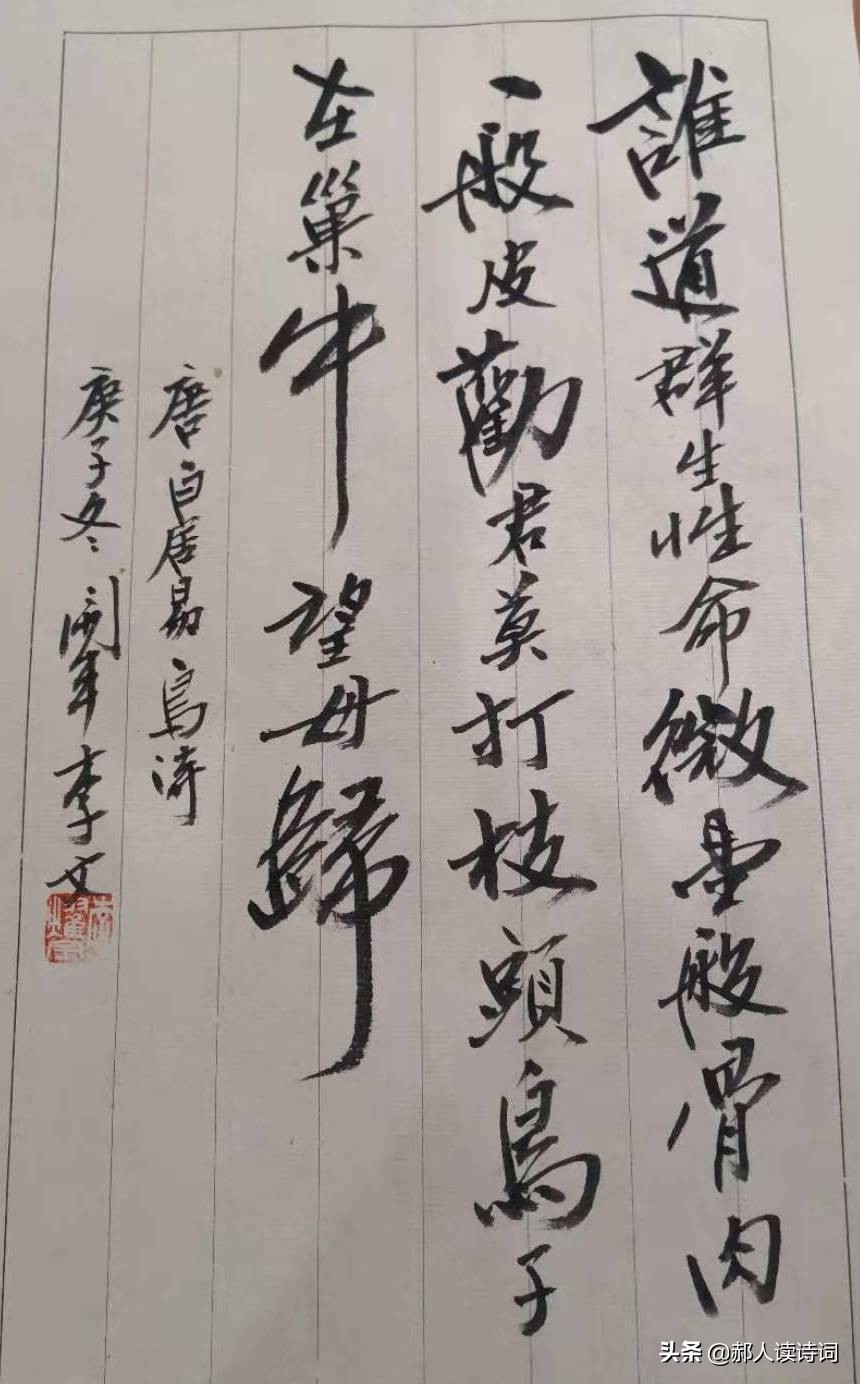 誰道群生性命微般骨肉
一般皮勸君莫打枝頭鳥子
在巢中望母歸
唐白居易鳥詩
庚子冬開年李文
头条 @郝人读诗词